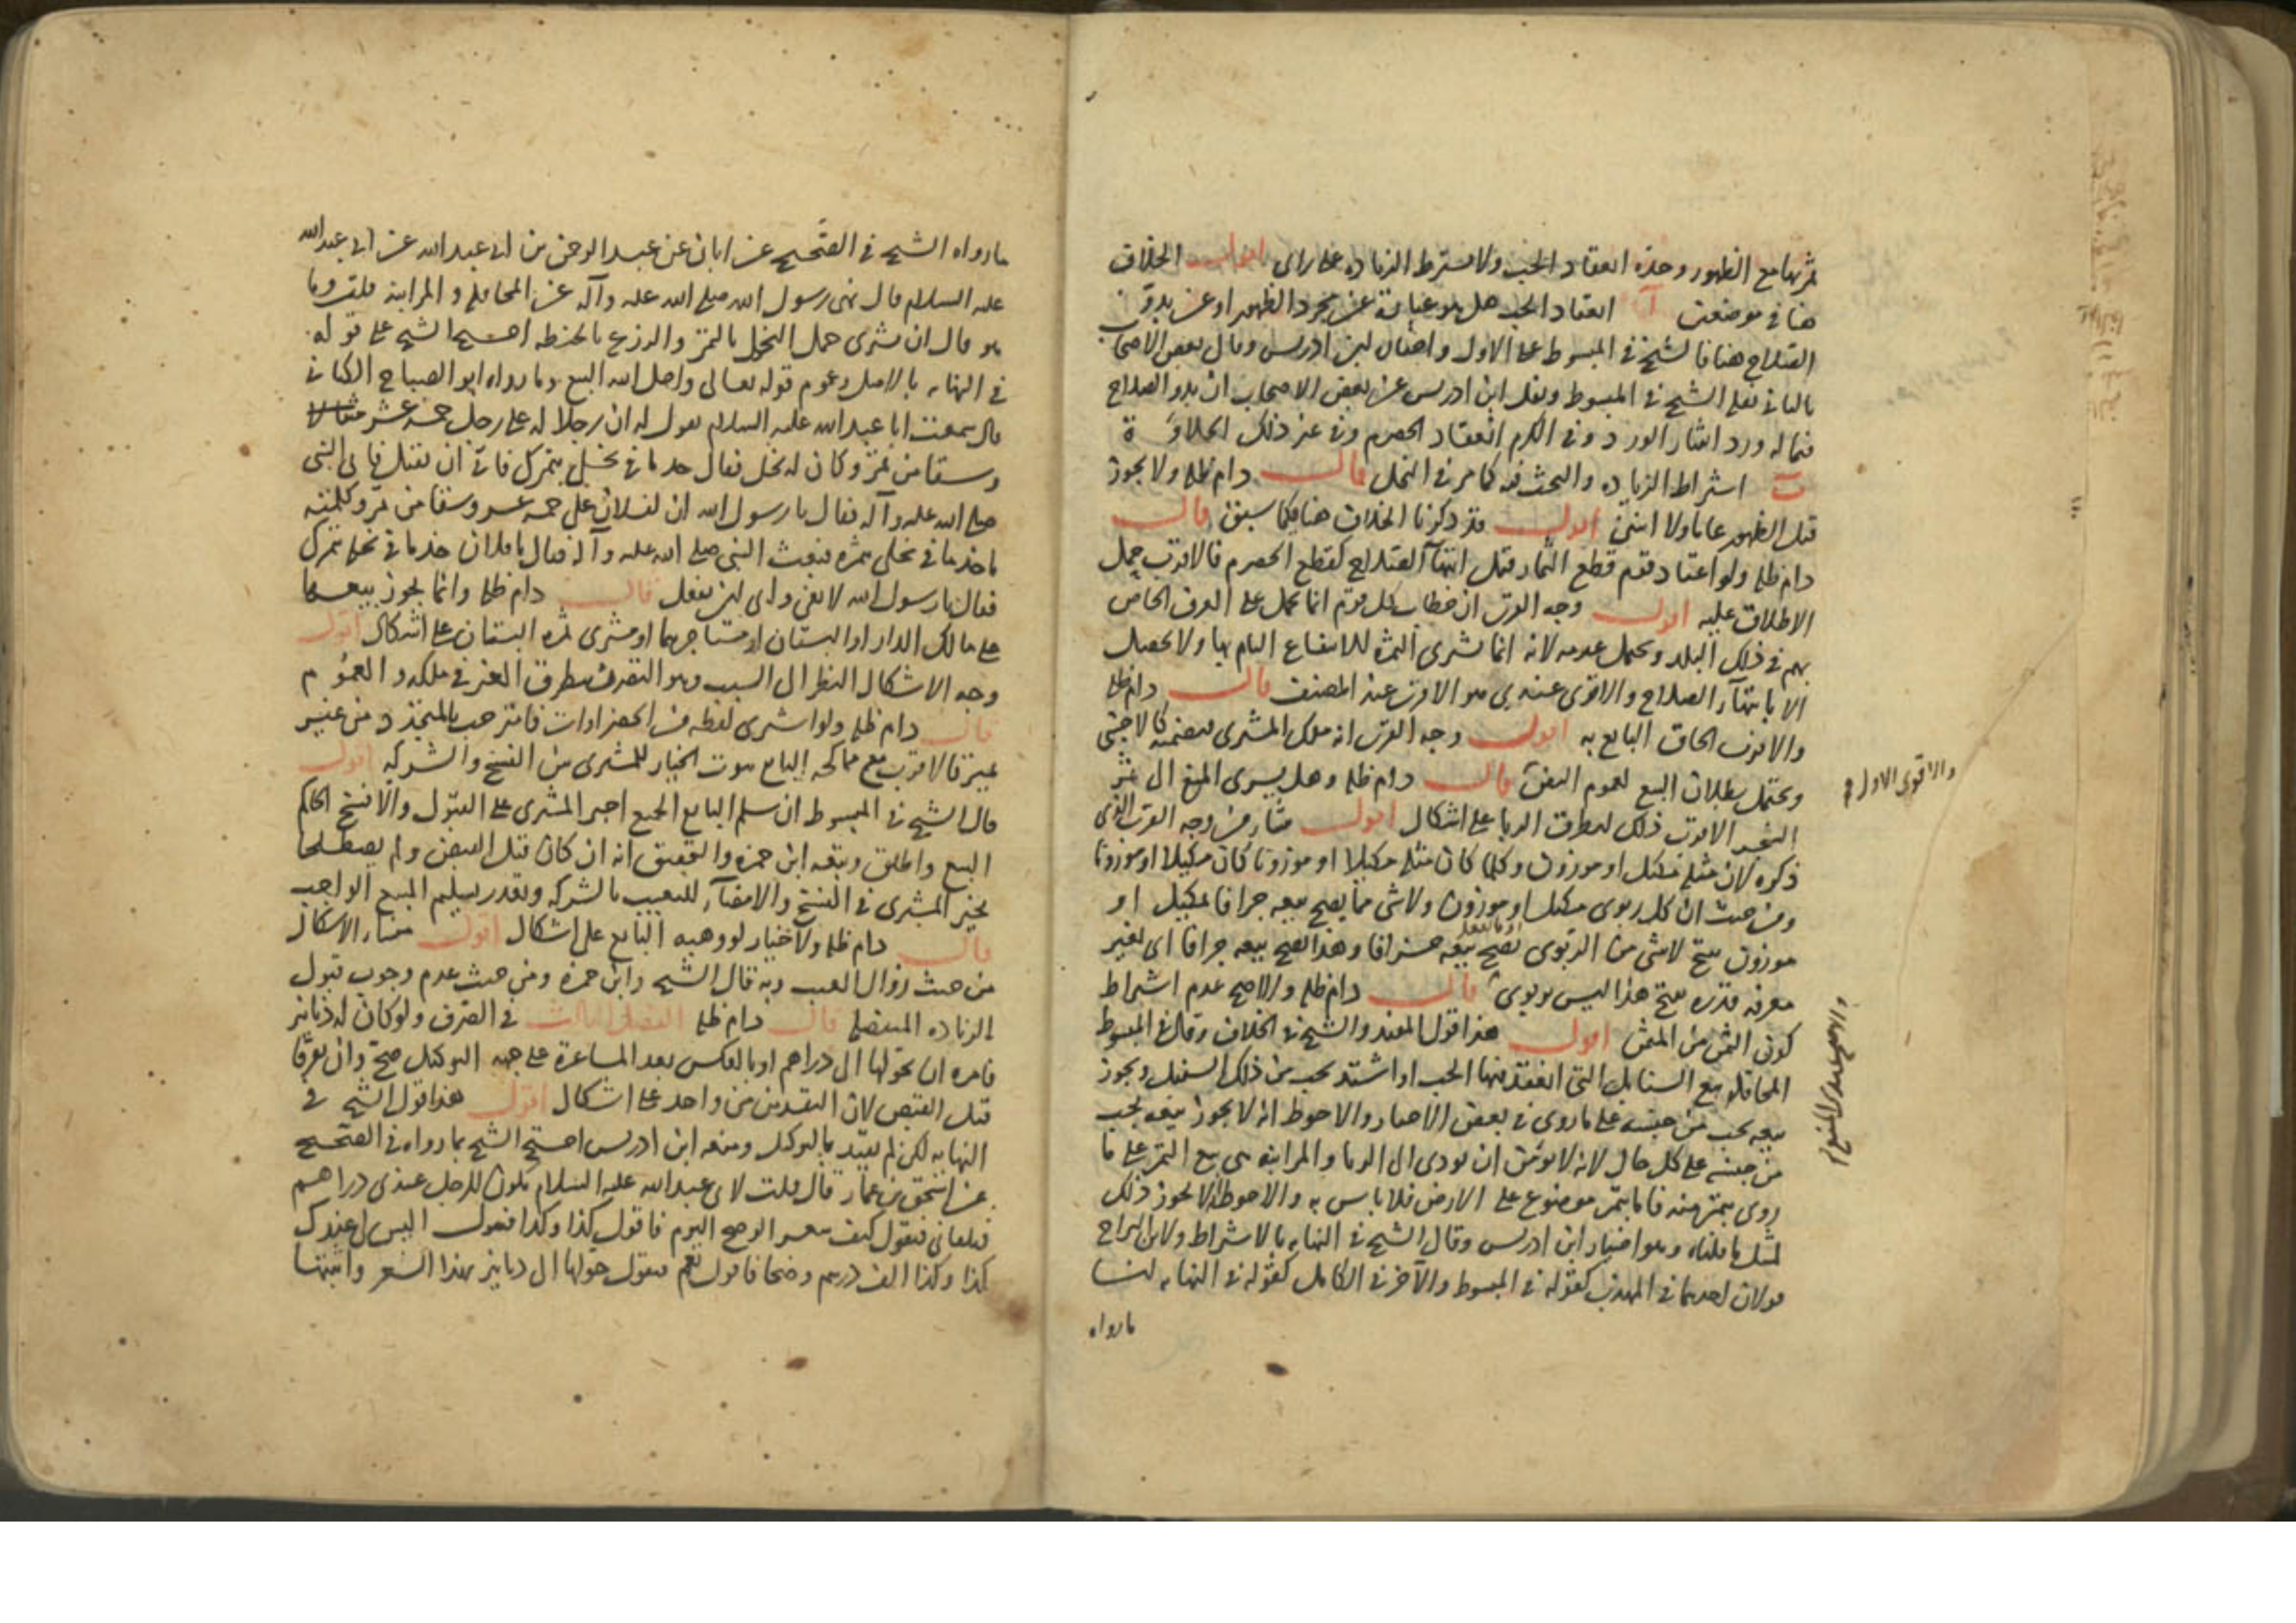 ثمرتها مع الظهور وحده انعقاد الحب ولا يشترط الزياده على راى اقول الخلاف
هنا في موضعين آ انعقاد الحب هل هو عبارة عن مجرد الظهور او عن بدو
الصلاح هنا فالشيخ في المبسوط على الاول واختاره ابن ادريس وقال بعض الاصحاب
بالثاني نقله الشيخ في المبسوط ونقل ابن ادريس عن بعض الاصحاب ان بدو الصلاح
فيما له ورد انتثار الورد وفى الكرم انعقاد الحصرم وفى غير ذلك الحلاوة
ب اشتراط الزياده والبحث فيه كما مر في النخل قال دام ظله ولا يجوز
قبل الظهور عاما ولا اثنين اقول قد ذكرنا الخلاف هنا فيما سبق قال
دام ظله ولو اعتاد قوم قطع الثمار قبل انتهآ الصلاح كقطع الحصرم فالاقرب حمل
الاطلاق عليه اقول وجه القرب ان خطاب كل قوم انما يحمل على العرف الخاص
بهم في ذلك البلد ويحتمل عدمه لانه انما يشرى الثمرة للانتفاع التام بها ولا يحصل
الا بانتهآء الصلاح والاقوى عندى هو الاقرب عند المصنف قال دام ظله
والاقرب الحاق البايع به اقول وجه القرب انه ملك المشترى فيضمنه كالاجنبى
ويحتمل بطلان البيع لعموم النص قال دام ظله وهل يسرى المنع الى ثمر
الشجر الاقرب ذلك لتطرق الربا على اشكال اقول منشاه من وجه القرب الذى
ذكره لان مثله مكيل او موزون وكلما كان مثله مكيلا او موزونا كان مكيلا او موزونا
ومن حيث ان كل ربوى مكيل او موزون ولا شى مما يصح بيعه جزافا بمكيل او
موزون ينتج لا شى من الربوى يصح بيعه جزافا وهذا يصح بيعه جزافا اى بغير
معرفة قدره ينتج هذا ليس بربوى قال دام ظله والاصح عدم اشتراط
كون الثمن من المثمن اقول هذا قول المفيد والشيخ في الخلاف وقال في المبسوط
المحاقلة بيع السنابل التى انعقد فيها الحب او اشتد بحب من ذلك السنبل ويجوز
بيعه بحب من جنسه على ما روى في بعض الاخبار والاحوط انه لا يجوز بيعه بحب
من جنسه على كل حال لانه لا يؤمن ان يودى الى الربا والمزابنه هى بيع التمر على ما
روى بتمر منه فاما بتمر موضوع على الارض فلا باس به والاحوط انه لا يجوز ذلك
لمثل ما قلناه وهو اختيار ابن ادريس وقال الشيخ في النهايه بالاشتراط ولابن البراج
قولان احدهما في المهذب كقوله في المبسوط والآخر في الكامل كقوله في النهايه لنا
ما رواه
والاقوى الاول
والاصح عندى المنع
ما رواه الشيخ في الصحيح عن ابان عن عبد الرحمن بن ابى عبد الله عن ابى عبد الله
عليه السلام قال نهى رسول الله صلى الله عليه وآله عن المحاقله والمزابنه قلت وما
هو قال ان يشترى حمل النخل بالتمر والزرع بالحنطه احتج الشيخ على قوله
في النهايه بالاصل وعموم قوله تعالى واحل الله البيع وما رواه ابو الصباح الكنانى
قال سمعت ابا عبد الله عليه السلام يقول له ان رجلا له على رجل خمسة عشر
وسقا من تمر وكان له نخل فقال خذ ما في نخلى بتمرك فابى ان يقبل فاتى النبى
صلى الله عليه وآله فقال يا رسول الله ان لفلان على خمسه عشر وسقا من تمر وكلمته
ياخذ ما في نخلى بتمره فبعث النبى صلى الله عليه وآله فقال يا فلان خذ ما في نخله بتمرك
فقال يا رسول الله لا يفى وابى ان يفعل قال دام ظله وانما يجوز بيعها
على مالك الدار او البستان او مستاجرهما او مشترى ثمرة البستان على اشكال اقول
وجه الاشكال النظر الى السبب وهو التضرر بتطرق الغير في ملكه والعموم
قال دام ظله ولو اشترى لقطه من الخضراوات فامتزجت بالمتجدد من غير
تميز فالاقرب مع مماحكه البايع ثبوت الخيار للمشترى بين الفسخ والشركه اقول
قال الشيخ في المبسوط ان سلم البايع الجميع اجبر المشترى على القبول والا فسخ الحاكم
البيع واطلق وتبعه ابن حمزه والتحقيق انه ان كان قبل القبض ولم يصطلحا
يخير المشترى في الفسخ والامضآء للتعيب بالشركه وتعذر تسليم المبيع الواجب
قال دام ظله ولا خيار لو وهبه البايع على اشكال اقول منشاء الاشكال
من حيث زوال العيب وبه قال الشيخ وابن حمزه ومن حيث عدم وجوب قبول
الزياده المتصله قال دام ظله الفصل الثالث في الصرف ولو كان له دنانير
فامره ان يحولها الى دراهم او بالعكس بعد المساعرة على جهه التوكيل صح وان تفرقا
قبل القبض لان النقدين من واحد على اشكال اقول هذا قول الشيخ في
النهايه لكن لم يقيد بالتوكيل ومنعه ابن ادريس احتج الشيخ بما رواه في الصحيح
عن اسحق بن عمار قال قلت لابى عبد الله عليه السلام يكون للرجل عندى دراهم
فيلقانى فيقول كيف سعر الوضح اليوم فاقول كذا وكذا فيقول اليس لى عندك
كذا وكذا الف درهم وضحا فاقول نعم فيقول حولها الى دنانير بهذا السعر واثبتها